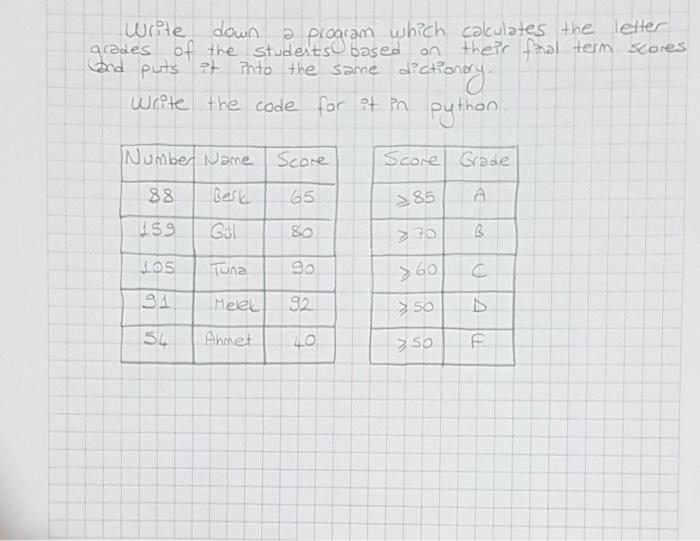 Write down a program which calculates the letter
grades of the students based on their final term scores
and puts it into the same dictionary.
Write the code for it in python.
Number Name Score
88 Berk 65
159 Gül 80
105 Tuna 90
91 Melek 92
54 Ahmet 40
Score Grade
⩾85 A
⩾70 B
⩾60 C
⩾50 D
⩾50 F